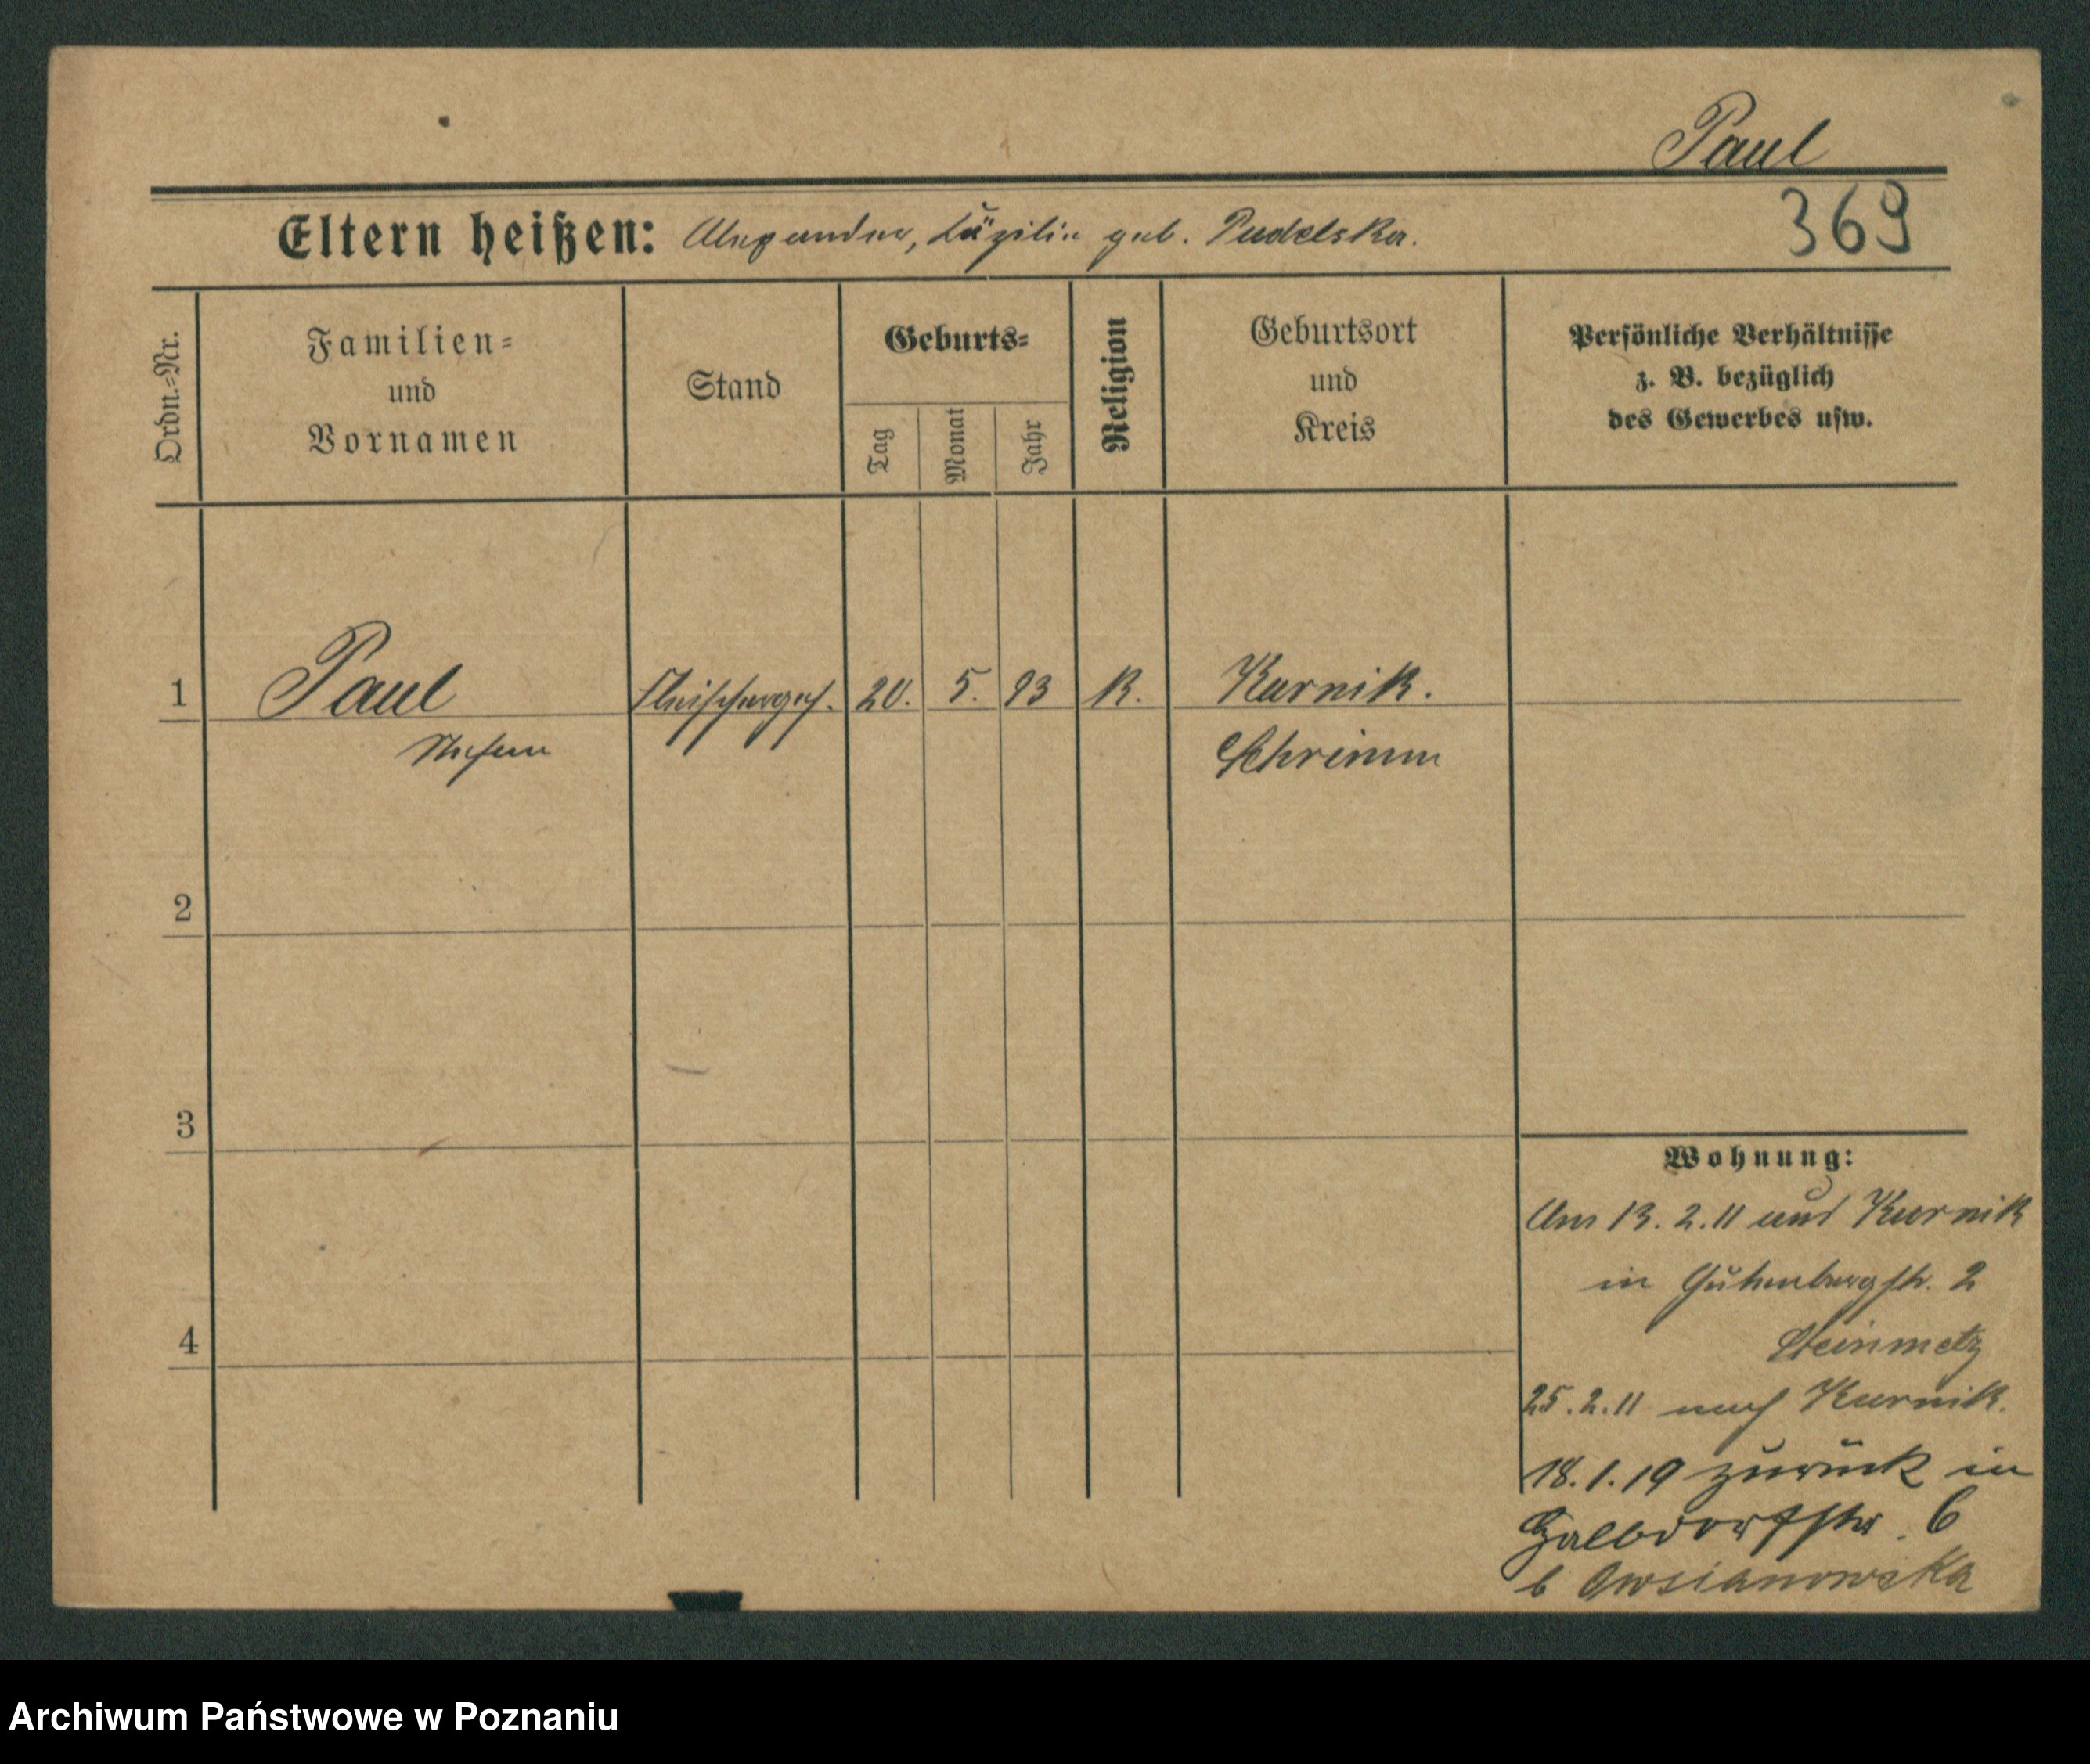 Paul
369
Eltern heißen: Alexander, Cäzilie geb. Pudelska.
Ordn.=Nr.
Familien=
und
Vornamen
Stand
Geburts=
Tag
Monat
Jahr
Religion
Geburtsort
und
Kreis
Persönliche Verhältnisse
z. B. bezüglich
des Gewerbes usw.
1 Paul Fleischerges. 20. 5. 93 K. Kurnik.
Stefan Schrimm
2
3
4
Wohnung:
Am 13. 2. 11 aus Kurnik
in Gutenbergstr. 2
Steinmetz
25. 2. 11 nach Kurnik.
18. 1. 19 zurück in
Halbdorfstr. 6
b Owsianowska
Archiwum Państwowe w Poznaniu